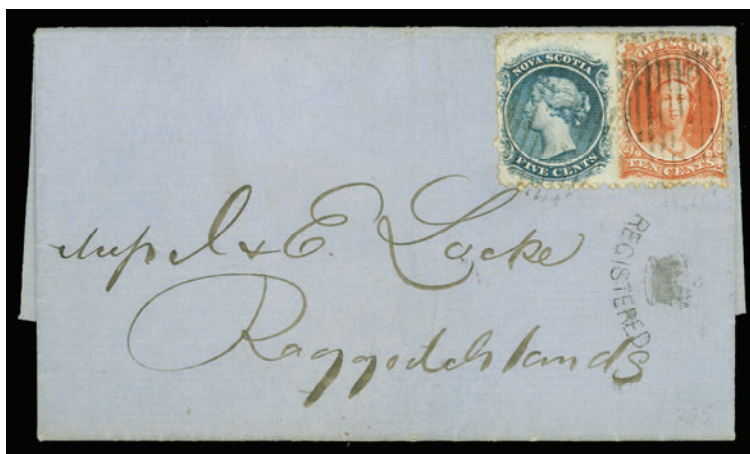 NOVA SCOTIA
FIVE CENTS
NOVA SCOTIA
TEN CENTS
Messrs J & E. Locke
Ragged Islands
REGISTERED
225